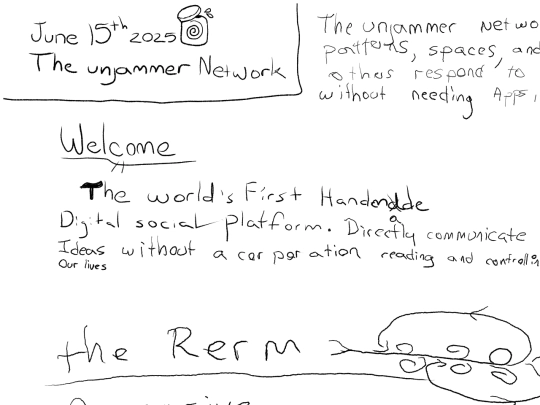 June 15th 2025
The unjammer Network
The unjammer Netwo
patterns, spaces, and
others respond to
without needing Apps,
Welcome
The world's First Handmade
Digital social platform. Directly communicate
Ideas without a corporation reading and controllin
Our lives
the Rerm